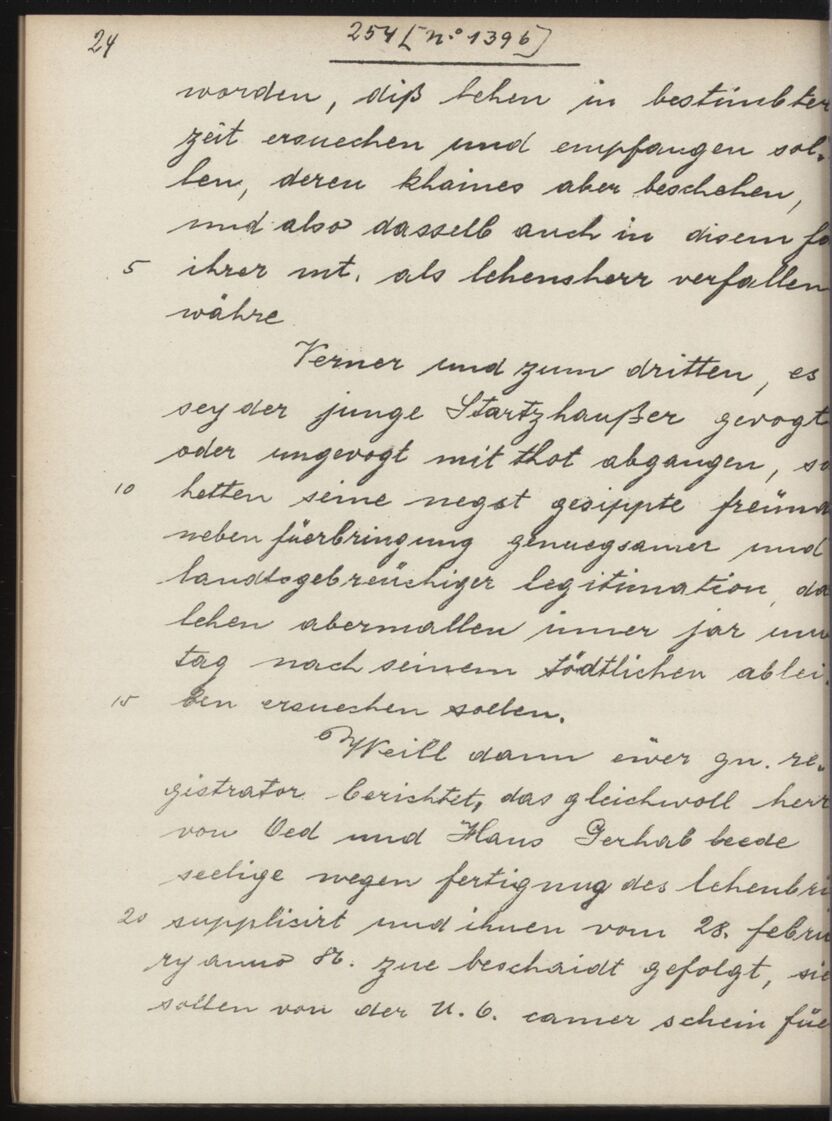 24
254 [N.o 1396]
worden, diß lehen in bestimbter
zeit ersuechen und empfangen sol-
len, deren khaines aber beschehen,
und also dasselb auch in disem fa
5 ihrer mt. als lehensherr verfallen
währe
Verner und zum dritten, es
sey der junge Startzhaußer gevogt
oder ungevogt mit thot abgangen, so
10 hetten seine negst gesippte freünd
neben füerbringung genuegsamer und
landtsgebreüchiger legitimation, da
lehen abermallen inner jar unn
tag nach seinem tödtlichen ablei-
15 ben ersuechen sollen.
Weill dann eüer gn. re-
gistrator berichtet, das gleichwoll herr
von Oed und Hans Gerhab beede
seelige wegen fertigung des lehenbri
20 supplicirt und ihnen vom 28. febru
ry anno 87. zue beschaidt gefolgt, sie
sollen von der N. Ö. camer schein füe